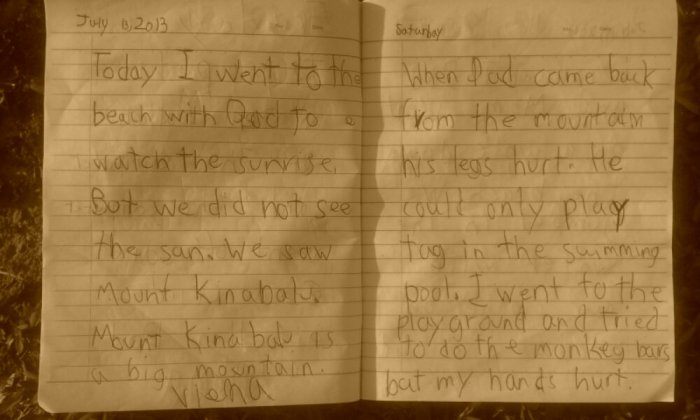 July 13, 2013
Today I went to the
beach with Dad to
watch the sunrise.
But we did not see
the sun. We saw
Mount Kinabalu.
Mount Kinabalu is
a big mountain.
Viena
Saturday
When Dad came back
from the mountain
his legs hurt. He
could only play
tag in the swimming
pool. I went to the
playground and tried
to do the monkey bars
but my hands hurt.